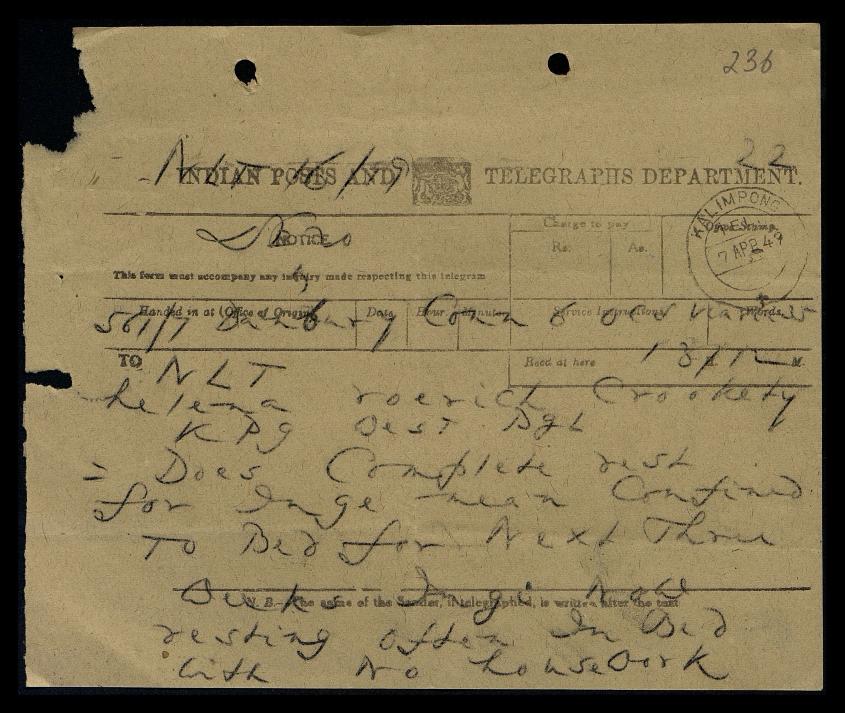 236
NLT 15/19 22
INDIAN POSTS AND TELEGRAPHS DEPARTMENT.
KALIMPONG
7 APR 49
NOTICE
Charge to pay
Rs. As.
This form must accompany any inquiry made respecting this telegram
Handed in at (Office of Origin) Date Hour Minute Service Instructions Words.
Danbury Conn 6
TO Recd at here M.
NLT
helena roerich Crookety
KPg Dest Bgl
= Does Complete rest
for Inge mean Confined
To Bed for Next Three
Weeks Inge Now
N. B.—The name of the Sender, if telegraphed, is written after the text
resting often In Bed
With No houseWork